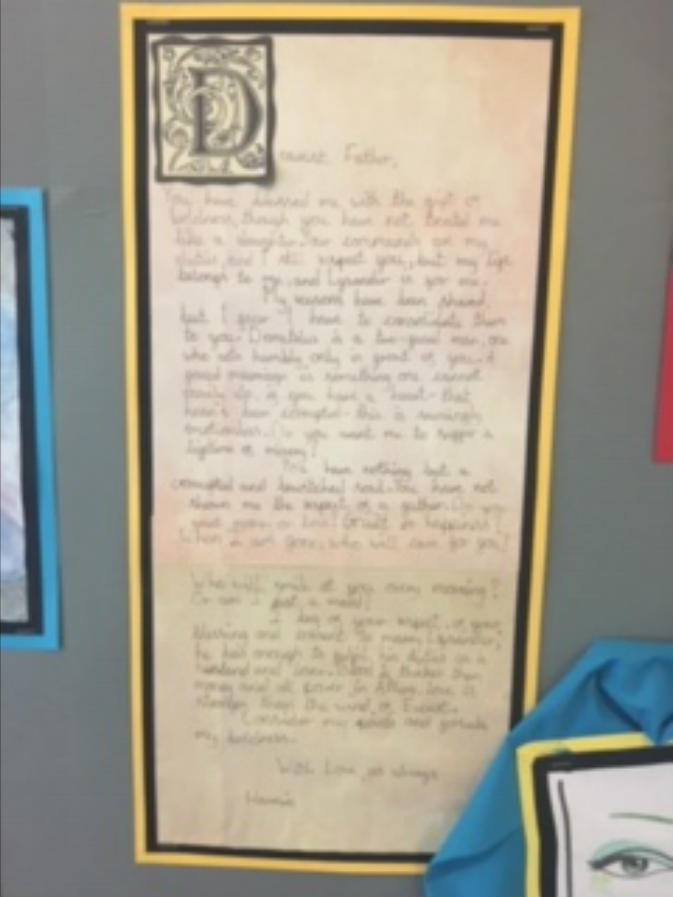 Dearest Father,
You have blessed me with the gift of
boldness, though you have not treated me
like a daughter. Your commands are my
duties and I still respect you, but my life
belongs to me, and Lysander is for me.
My reasons have been shared,
but I fear I have to consolidate them
to you. Demetrius is a two-faced man, one
who acts humbly only in front of you. A
good marriage is something one cannot
easily do, if you have a heart - that
hasn't been corrupted - this is seemingly
emotionless. Do you want me to suffer a
lifetime of misery?
You have nothing but a
corrupted and bewitched soul. You have not
shown me the respect of a father. Do you
When I am gone, who will care for you?
Who will smile at you every morning?
Or am I just a maid?
I beg of your respect, of your
blessing and consent to marry Lysander,
he has enough to fulfil his duties as a
husband and love. Blood is thicker than
money and all power in Athens, love is
stronger than the wind of
Consider my words and pardon
my boldness.
With Love, as always
Hermia